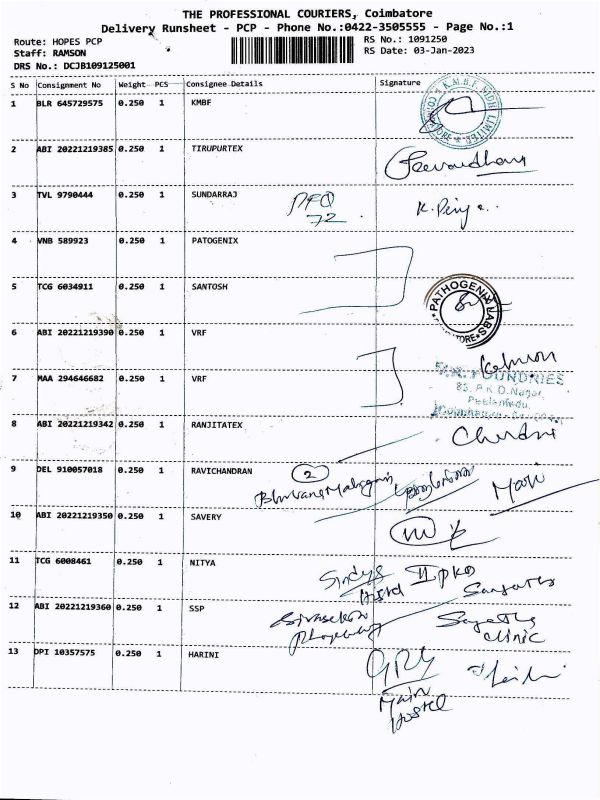 THE PROFESSIONAL COURIERS, Coimbatore
Delivery Runsheet - PCP - Phone No.:0422-3505555 - Page No.:1
Route: HOPES PCP
RS No.: 1091250
Staff: RAMSON
RS Date: 03-Jan-2023
DRS No.: DCJB109125001
S No Consignment No Weight PCS Consignee Details Signature
1 BLR 645729575 0.250 1 KMBF
K.M.B.F NIDHI LIMITED
2 ABI 20221219385 0.250 1 TIRUPURTEX
3 TVL 9790444 0.250 1 SUNDARRAJ
72
K. Priya
4 VNB 589923 0.250 1 PATOGENIX
5 TCG 6034911 0.250 1 SANTOSH
PATHOGENIX LABS
6 ABI 20221219390 0.250 1 VRF
FOUNDRIES
7 MAA 294646682 0.250 1 VRF
83, P.K.D. Nagar,
Peelamedu,
8 ABI 20221219342 0.250 1 RANJITATEX
9 DEL 910057018 0.250 1 RAVICHANDRAN
2
10 ABI 20221219350 0.250 1 SAVERY
11 TCG 6008461 0.250 1 NITYA
Hostel
12 ABI 20221219360 0.250 1 SSP
clinic
13 DPI 10357575 0.250 1 HARINI
GRG
Main
Hostel